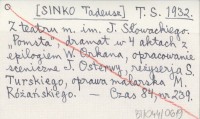 [SINKO Tadeusz] T. S. 1932.
Z teatru m. im. J. Słowackiego.
"Pomsta", dramat w 4 aktach z
epilogiem W. Orkana, opracowanie
sceniczne J. Osterwy, reżyserja S.
Turskiego, oprawa malarska M.
Różańskiego. — Czas 84, nr 239.